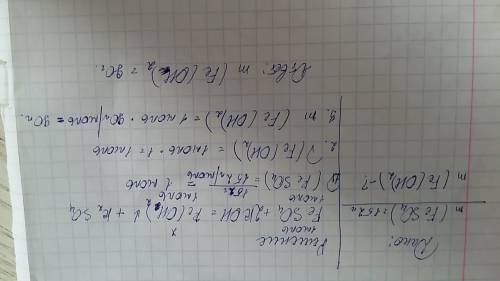 Дано:
m (FeSO₄) = 152г
m (Fe(OH)₂) - ?
Решение
1моль x
FeSO₄ + 2KOH = Fe(OH)₂ ↓ + K₂SO₄
1моль 1моль
(FeSO₄) = 152г = 1 моль
2. ν(Fe(OH)₂) = 1моль · 1 = 1моль
3. m (Fe(OH)₂) = 1 моль · 90г/моль = 90г.
Ответ: m (Fe(OH)₂ = 90г.